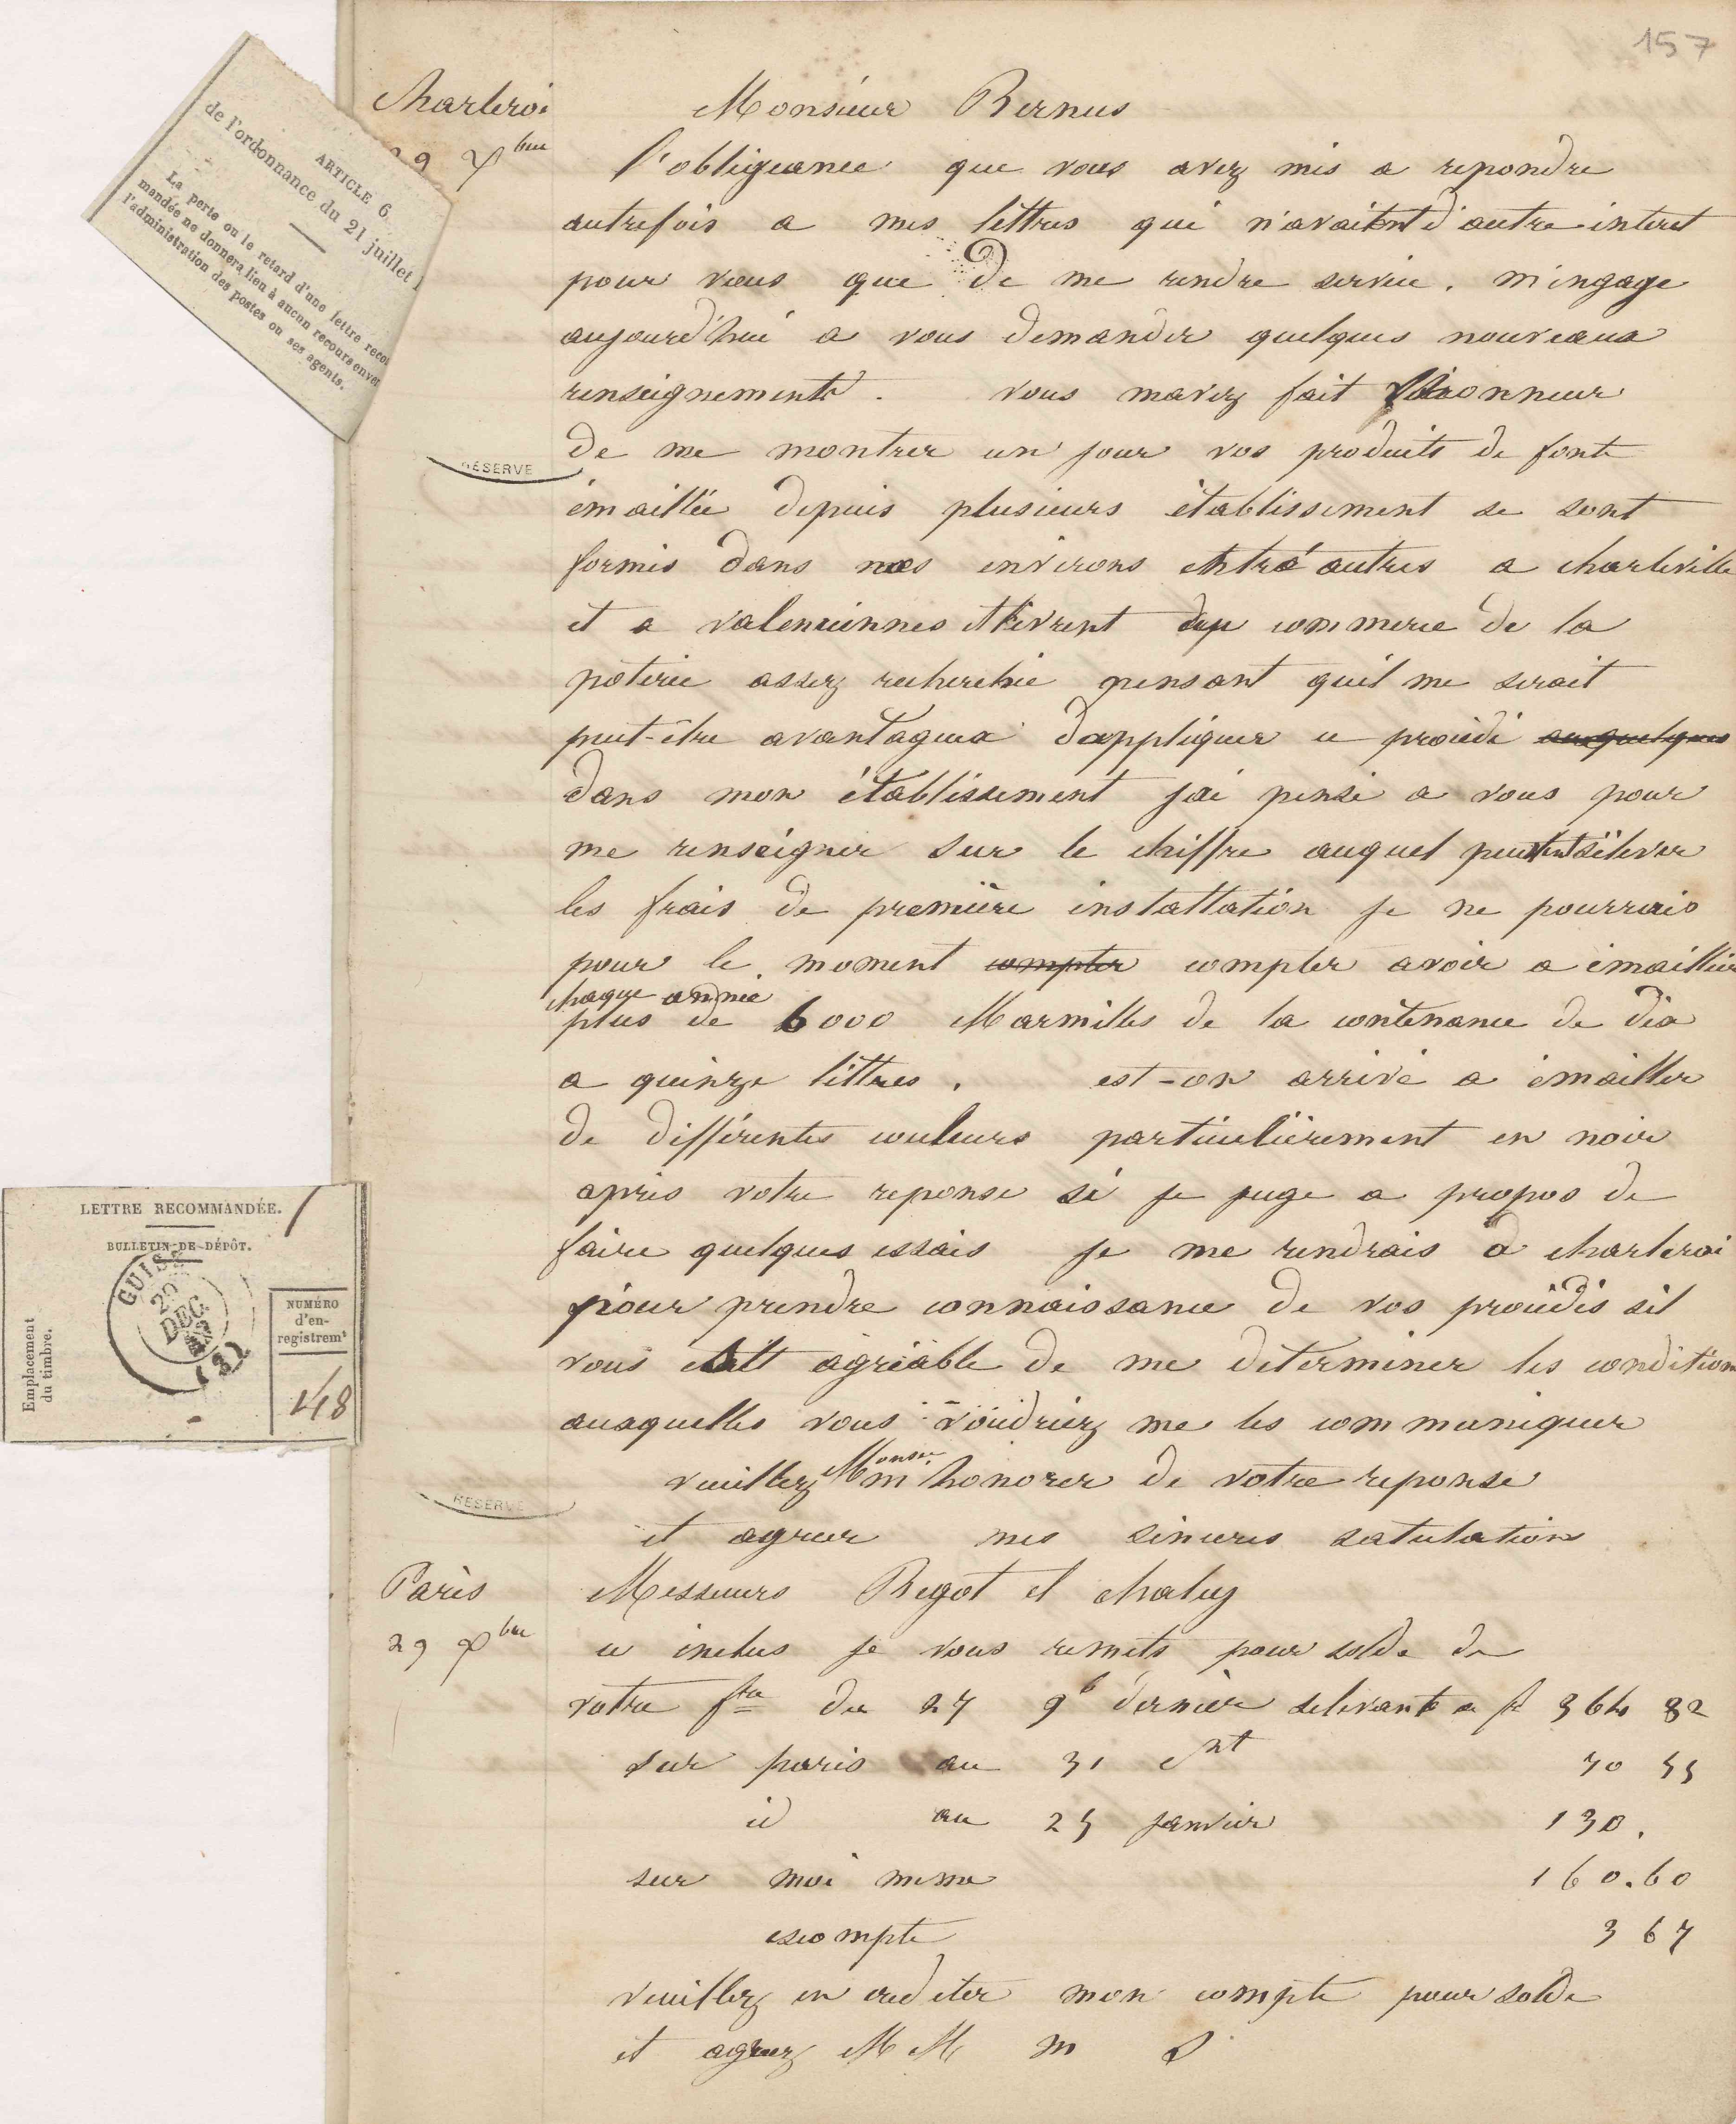 157
de l'ordonnance du 21 juillet 1
ARTICLE 6.
La perte ou le retard d'une lettre recom
mandée ne donnera lieu à aucun recours enver
l'administration des postes ou ses agents.
Charleroi
29 Xbre
Monsieur Bernus
l'obligeance que vous avez mis a repondre
autrefois a mes lettres qui n'avaient d'autre interet
pour vous que de me rendre service. m'engage
aujourd'hui a vous demander quelques nouveaux
renseignements. vous mavez fait l'honneur
RÉSERVE
de me montrer un jour vos produits de fonte
émaillée depuis plusieurs établissement se sont
formés dans nos environs entre autres a charleville
et a valenciennes et livrent au commerce de la
poterie assez recherchée pensant quil me serait
peut-être avantageux dappliquer ce procédé au quelques
dans mon établissement jai pensé a vous pour
me renseigner sur le chiffre auquel peuvent séléver
les frais de première installation je ne pourrais
pour le moment compter compter avoir a émailler
chaque année
plus de 6000 Marmites de la contenance de dix
a quinze littres. est-on arrivé a émailler
de différentes couleurs particulièrement en noir
après votre reponse si je juge a propos de
faire quelques essais je me rendrais a charleroi
pour prendre connaissance de vos procédés sil
vous était agréable de me determiner les condition
auxquelles vous voudriez me les communiquer
veuillez Monsr m'honorer de votre reponse
et agreer mes sinceres salutations
LETTRE RECOMMANDÉE. 1
BULLETIN DE DÉPÔT.
GUISE
DEC.
(2)
Emplacement
du timbre.
NUMÉRO
d'en-
registremt
148
RÉSERVE
Paris
29 Xbre
Messieurs Regot et chaluz
ci inclus je vous remets pour solde de
votre fre du 27 9b dernier selevant a f 364 82
sur paris au 31 ct 70 55
id au 25 janvier 130.
sur moi meme 160.60
escompte 3 67
veuillez en crediter mon compte pour solde
et agreez MM m S